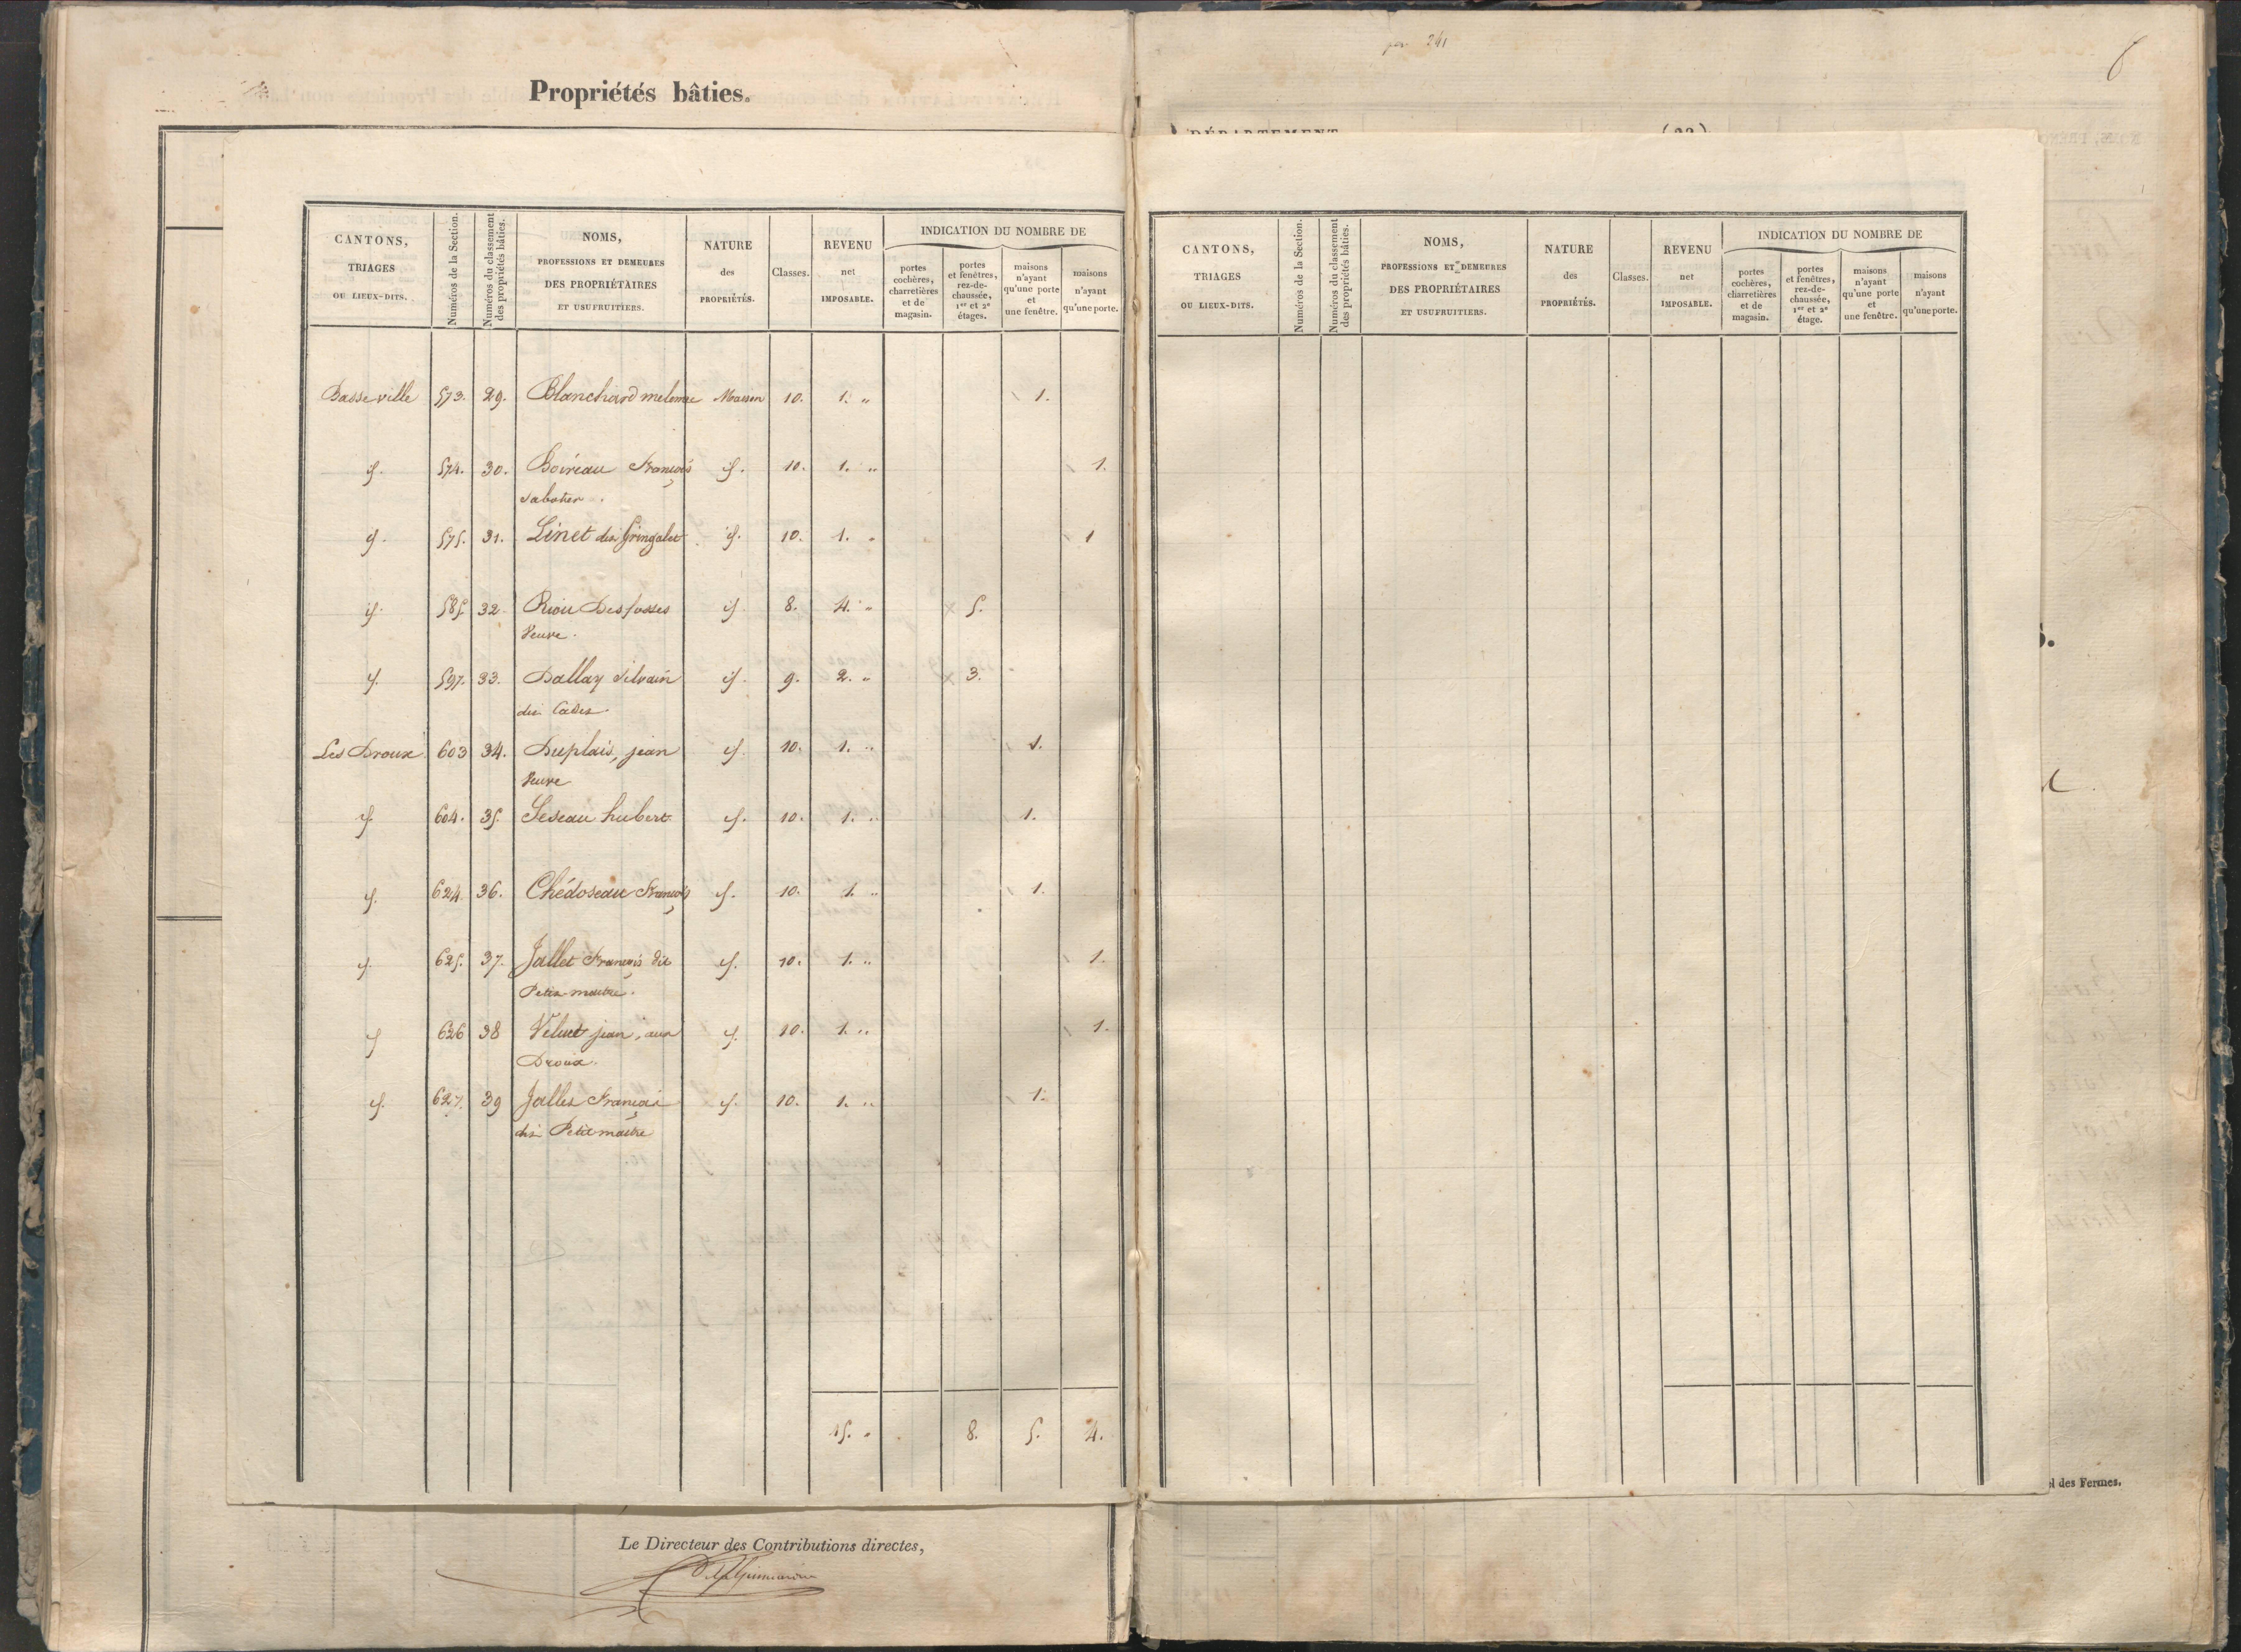 Propriétés bâties.
CANTONS, TRIAGES OU LIEUX-DITS.
Numéros de la Section.
Numéros du classement des propriétés bâties.
NOMS, PROFESSIONS ET DEMEURES DES PROPRIÉTAIRES ET USUFRUITIERS.
NATURE des PROPRIÉTÉS.
Classes.
REVENU net IMPOSABLE.
INDICATION DU NOMBRE DE
portes cochères, charretières et de magasin.
portes et fenêtres, rez-de-chaussée, 1er et 2e étages.
maisons n'ayant qu'une porte et une fenêtre.
maisons n'ayant qu'une porte.
Basse ville 573. 29. Blanchard Maison 10. 1. " 1.
id. 574. 30. Boireau François id. 10. 1. " 1.
sabotier.
id. 575. 31. Linet dit Gringalet id. 10. 1. " 1
id. 585 32. Riou Desfosses id. 8. 4. " 5.
Veuve.
id. 597. 33. Dallay Silvain id. 9. 2. " 3.
dit
Les Droux 603 34. Duplais, jean id. 10. 1. " 1.
Veuve
id. 604. 35. hubert id. 10. 1. " 1.
id. 624. 36. Chédoseau François id. 10. 1. " 1.
id. 625. 37. Jallet François dit id. 10. 1. " 1.
Petit maitre.
id. 626 38 jean, aux id. 10. 1. " 1.
Droux.
id. 627. 39 Jallet François id. 10. 1. " 1.
dit Petit maitre
15. " 8. 5. 4.
Le Directeur des Contributions directes,
241
DÉPARTEMENT
CANTONS, TRIAGES OU LIEUX-DITS.
Numéros de la Section.
Numéros du classement des propriétés bâties.
NOMS, PROFESSIONS ET DEMEURES DES PROPRIÉTAIRES ET USUFRUITIERS.
NATURE des PROPRIÉTÉS.
Classes.
REVENU net IMPOSABLE.
INDICATION DU NOMBRE DE
portes cochères, charretières et de magasin.
portes et fenêtres, rez-de-chaussée, 1er et 2e étage.
maisons n'ayant qu'une porte et une fenêtre.
maisons n'ayant qu'une porte.
des Fermes.